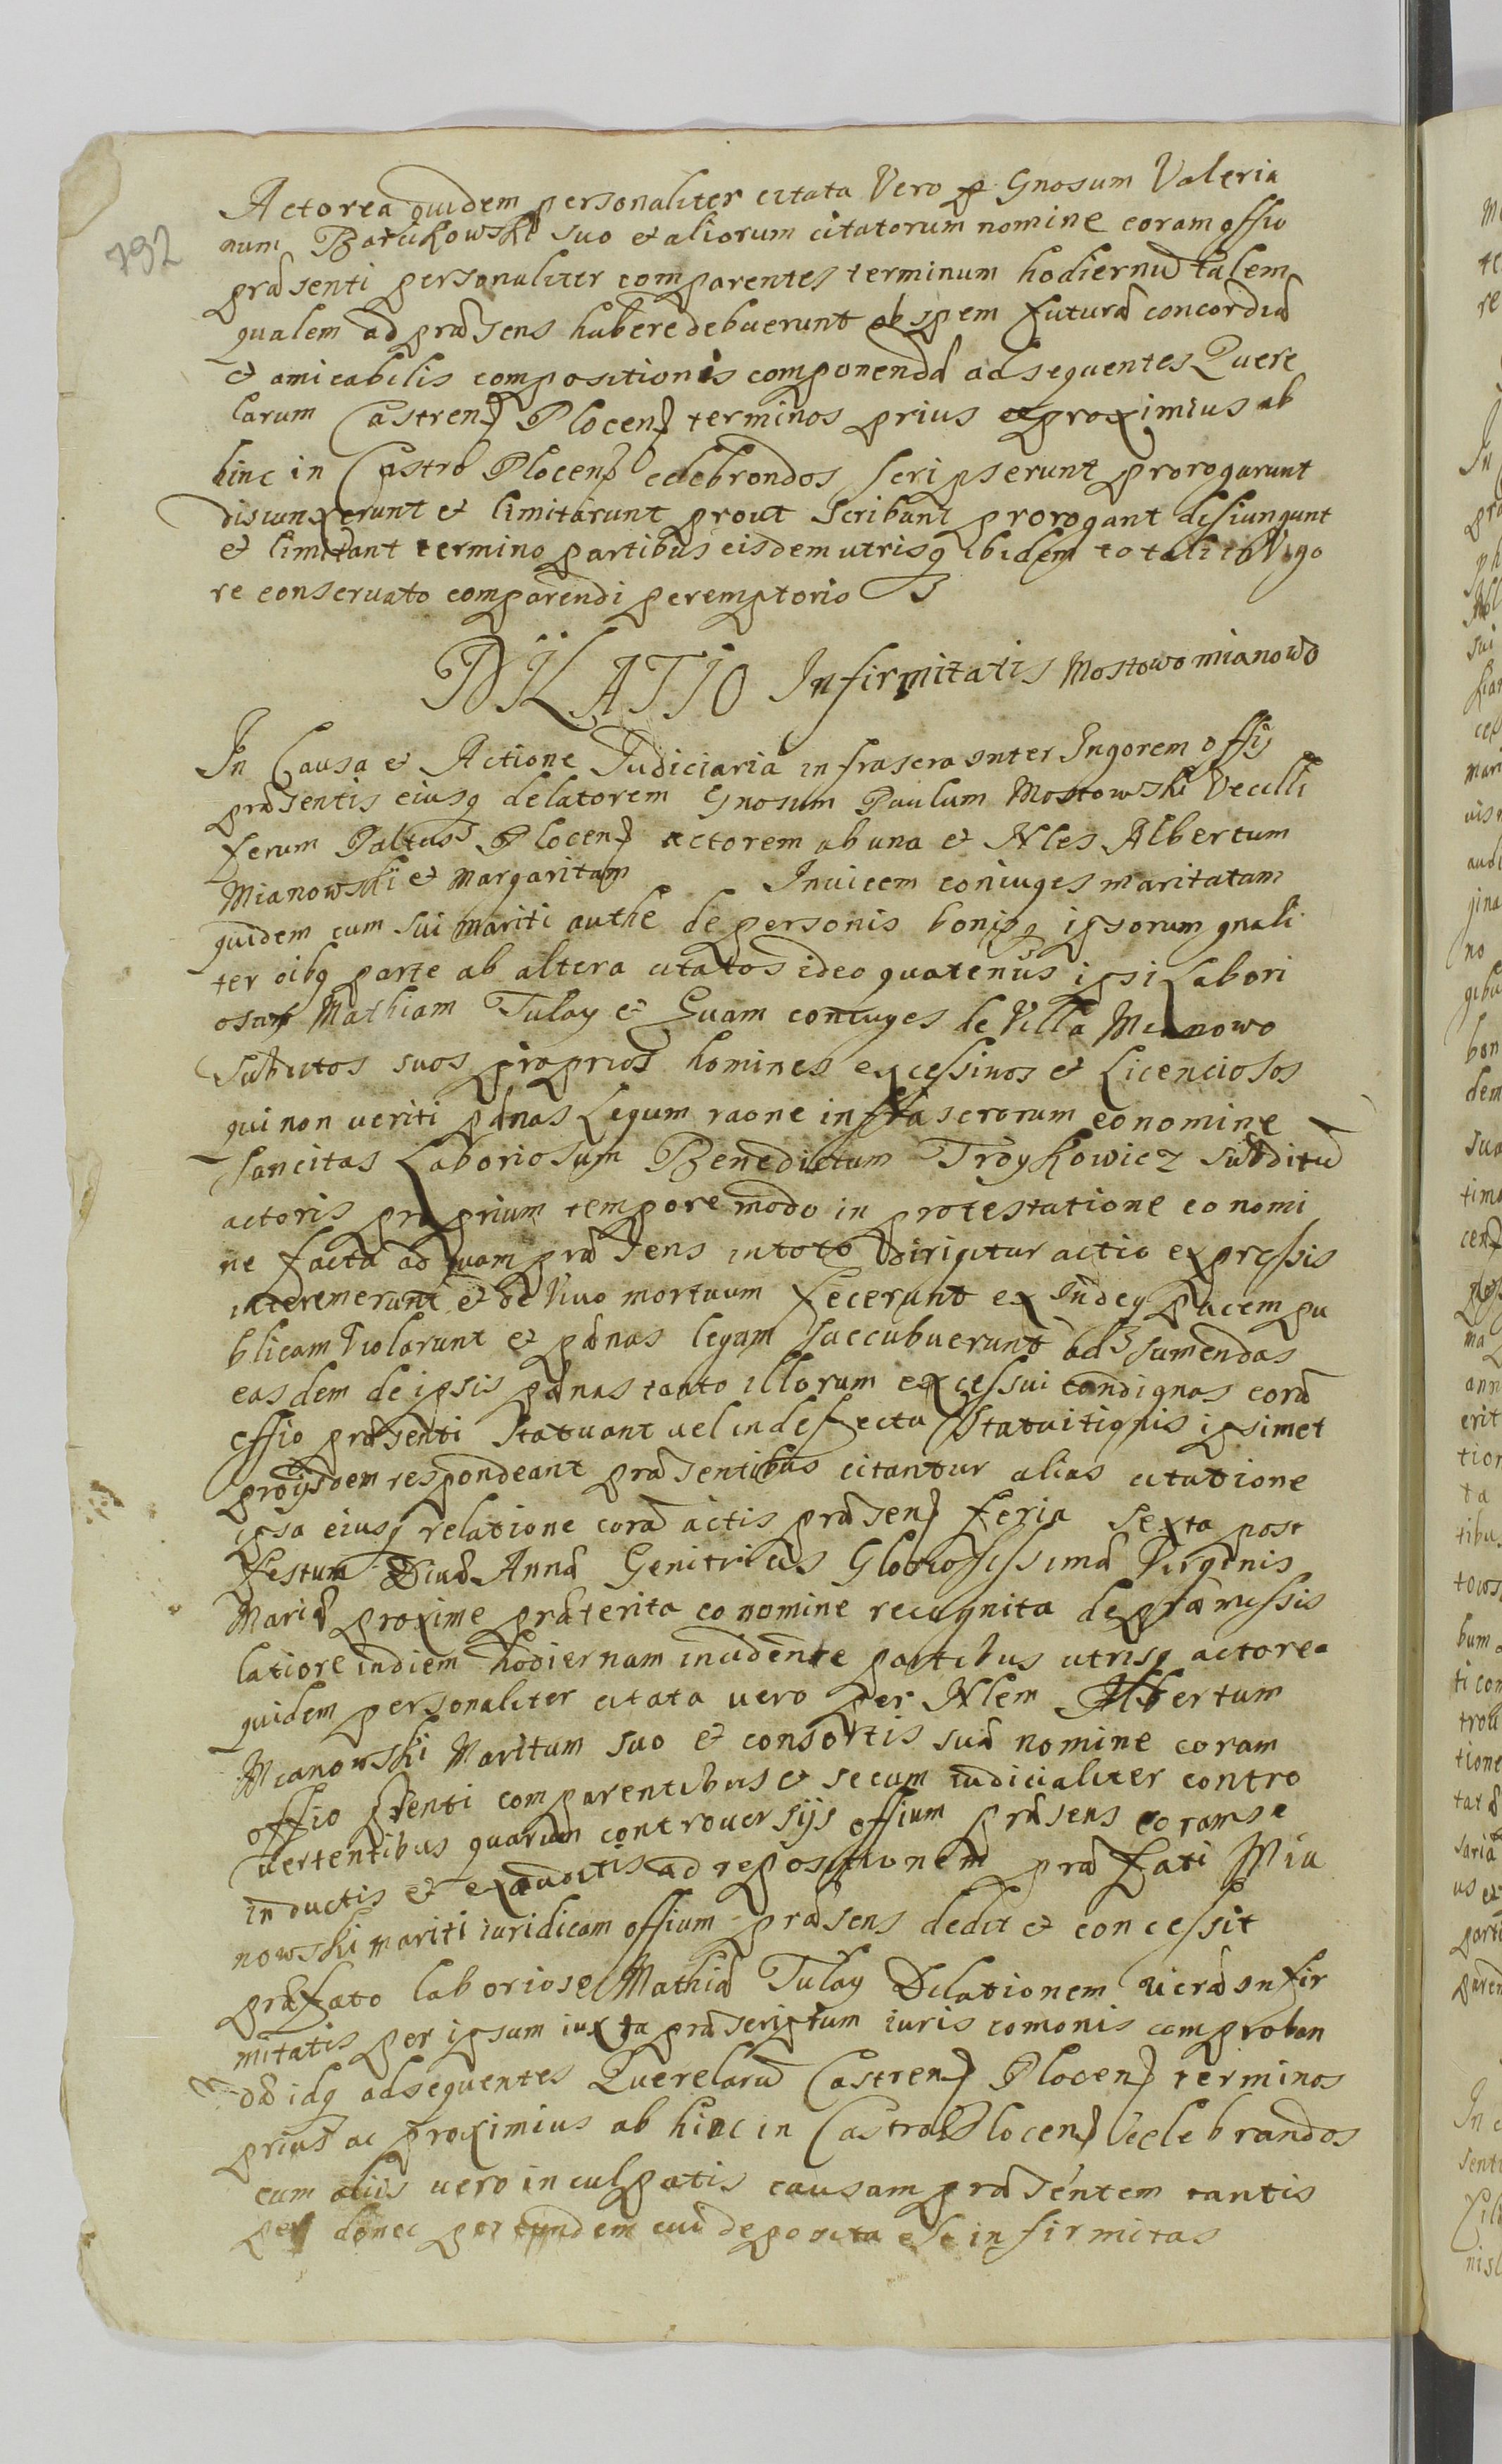 792
Actorea quidem personaliter citata Vero p Gnosum Valeria
num Barcikowski suo et aliorum citatorum nomine coram offio
præsenti personaliter comparentes terminum hodiernũ talem
qualem ad præsens habere debuerunt ob spem futuræ concordiæ
et amicabilis compositionis componendæ ad sequentes Quere
larum Castren Plocen terminos prius ac proximius ab
hinc in Castro Plocen celebrandos scripserunt prorogarunt
disiunxerunt et limitarunt prout scribunt prorogant disiungunt
et limitant termino partibus eisdem utrisq ibidem totali in Vigo
re conservato comparendi peremptorio
DILATIO Infirmitatis Mostowo mianowo
In Causa et Actione Judiciaria infrascra inter Ingorem offij
præsentis eiusq delatorem Gnosum Paulum Mostowski Vexilli
ferum Plocen actorem ab una et Nles Albertum
Mianowski et Margaritam Invicem coniuges maritatam
quidem cum sui mariti authe de personis bonisq ipsorum gnali
ter oibq parte ab altera citatos ideo quatenus ipsi Labori
osum Mathiam Tulay et Evam coniuges de Villa Mianowo
Subditos suos proprios homines excessivos et Licenciosos
qui non veriti pænas Legum raone infrascrorum eo nomine
sancitas Laboriosum Benedictum Troykowicz subditũ
actoris proprium tempore modo in protestatione eo nomi
ne facta ad quam præsens in toto dirigitur actio expressis
interemerunt et de Vivo mortuum fecerunt ex Indeq pacem pu
blicam Violarunt et pænas legum succubuerunt ad sumendas
easdem de ipsis pænas tanto illorum excessui condignas corã
offio præsenti statuant vel in defectu Statuitionis ipsimet
pro ijsdem respondeant præsentibus citantur alias citatione
ipsa eiusq relatione corã actis præsen feria sexta post
festum Divæ Annæ Genitricis Gloriosissimæ Virginis
Mariæ proxime præterita eo nomine recognita de præmissis
latiore in diem hodiernam incidente partibus utrisq actorea
quidem personaliter citata vero per Nlem Albertum
Mianowski Maritum suo et consortis suæ nomine coram
offio præsenti comparentibus et secum iudicialiter contro
vertentibus quarum controversijs offium præsens coram se
inductis et exauditis ad repositionem præfati Mia
nowski mariti iuridicam offium præsens dedit et concessit
præfato laborioso Mathiæ Tulay Dilationem veræ infir
mitatis per ipsum iuxta præscriptum iuris comonis comproban
dæ idq ad sequentes Querelarũ Castren Plocen terminos
prius ac proximius ab hinc in Castro Plocen celebrandos
cum aliis vero inculpatis causam præsentem tantis
per donec per eundem cui deposita est infirmitas